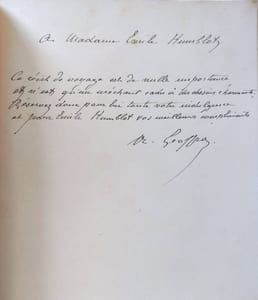 A Madame Emile Humblot
Ce récit de voyage est de nulle importance
et n'est qu'un méchant cadre à des dessins charmants.
Réservez donc pour lui toute votre indulgence
et pour Emile Humblot vos meilleurs compliments
Geoffroy